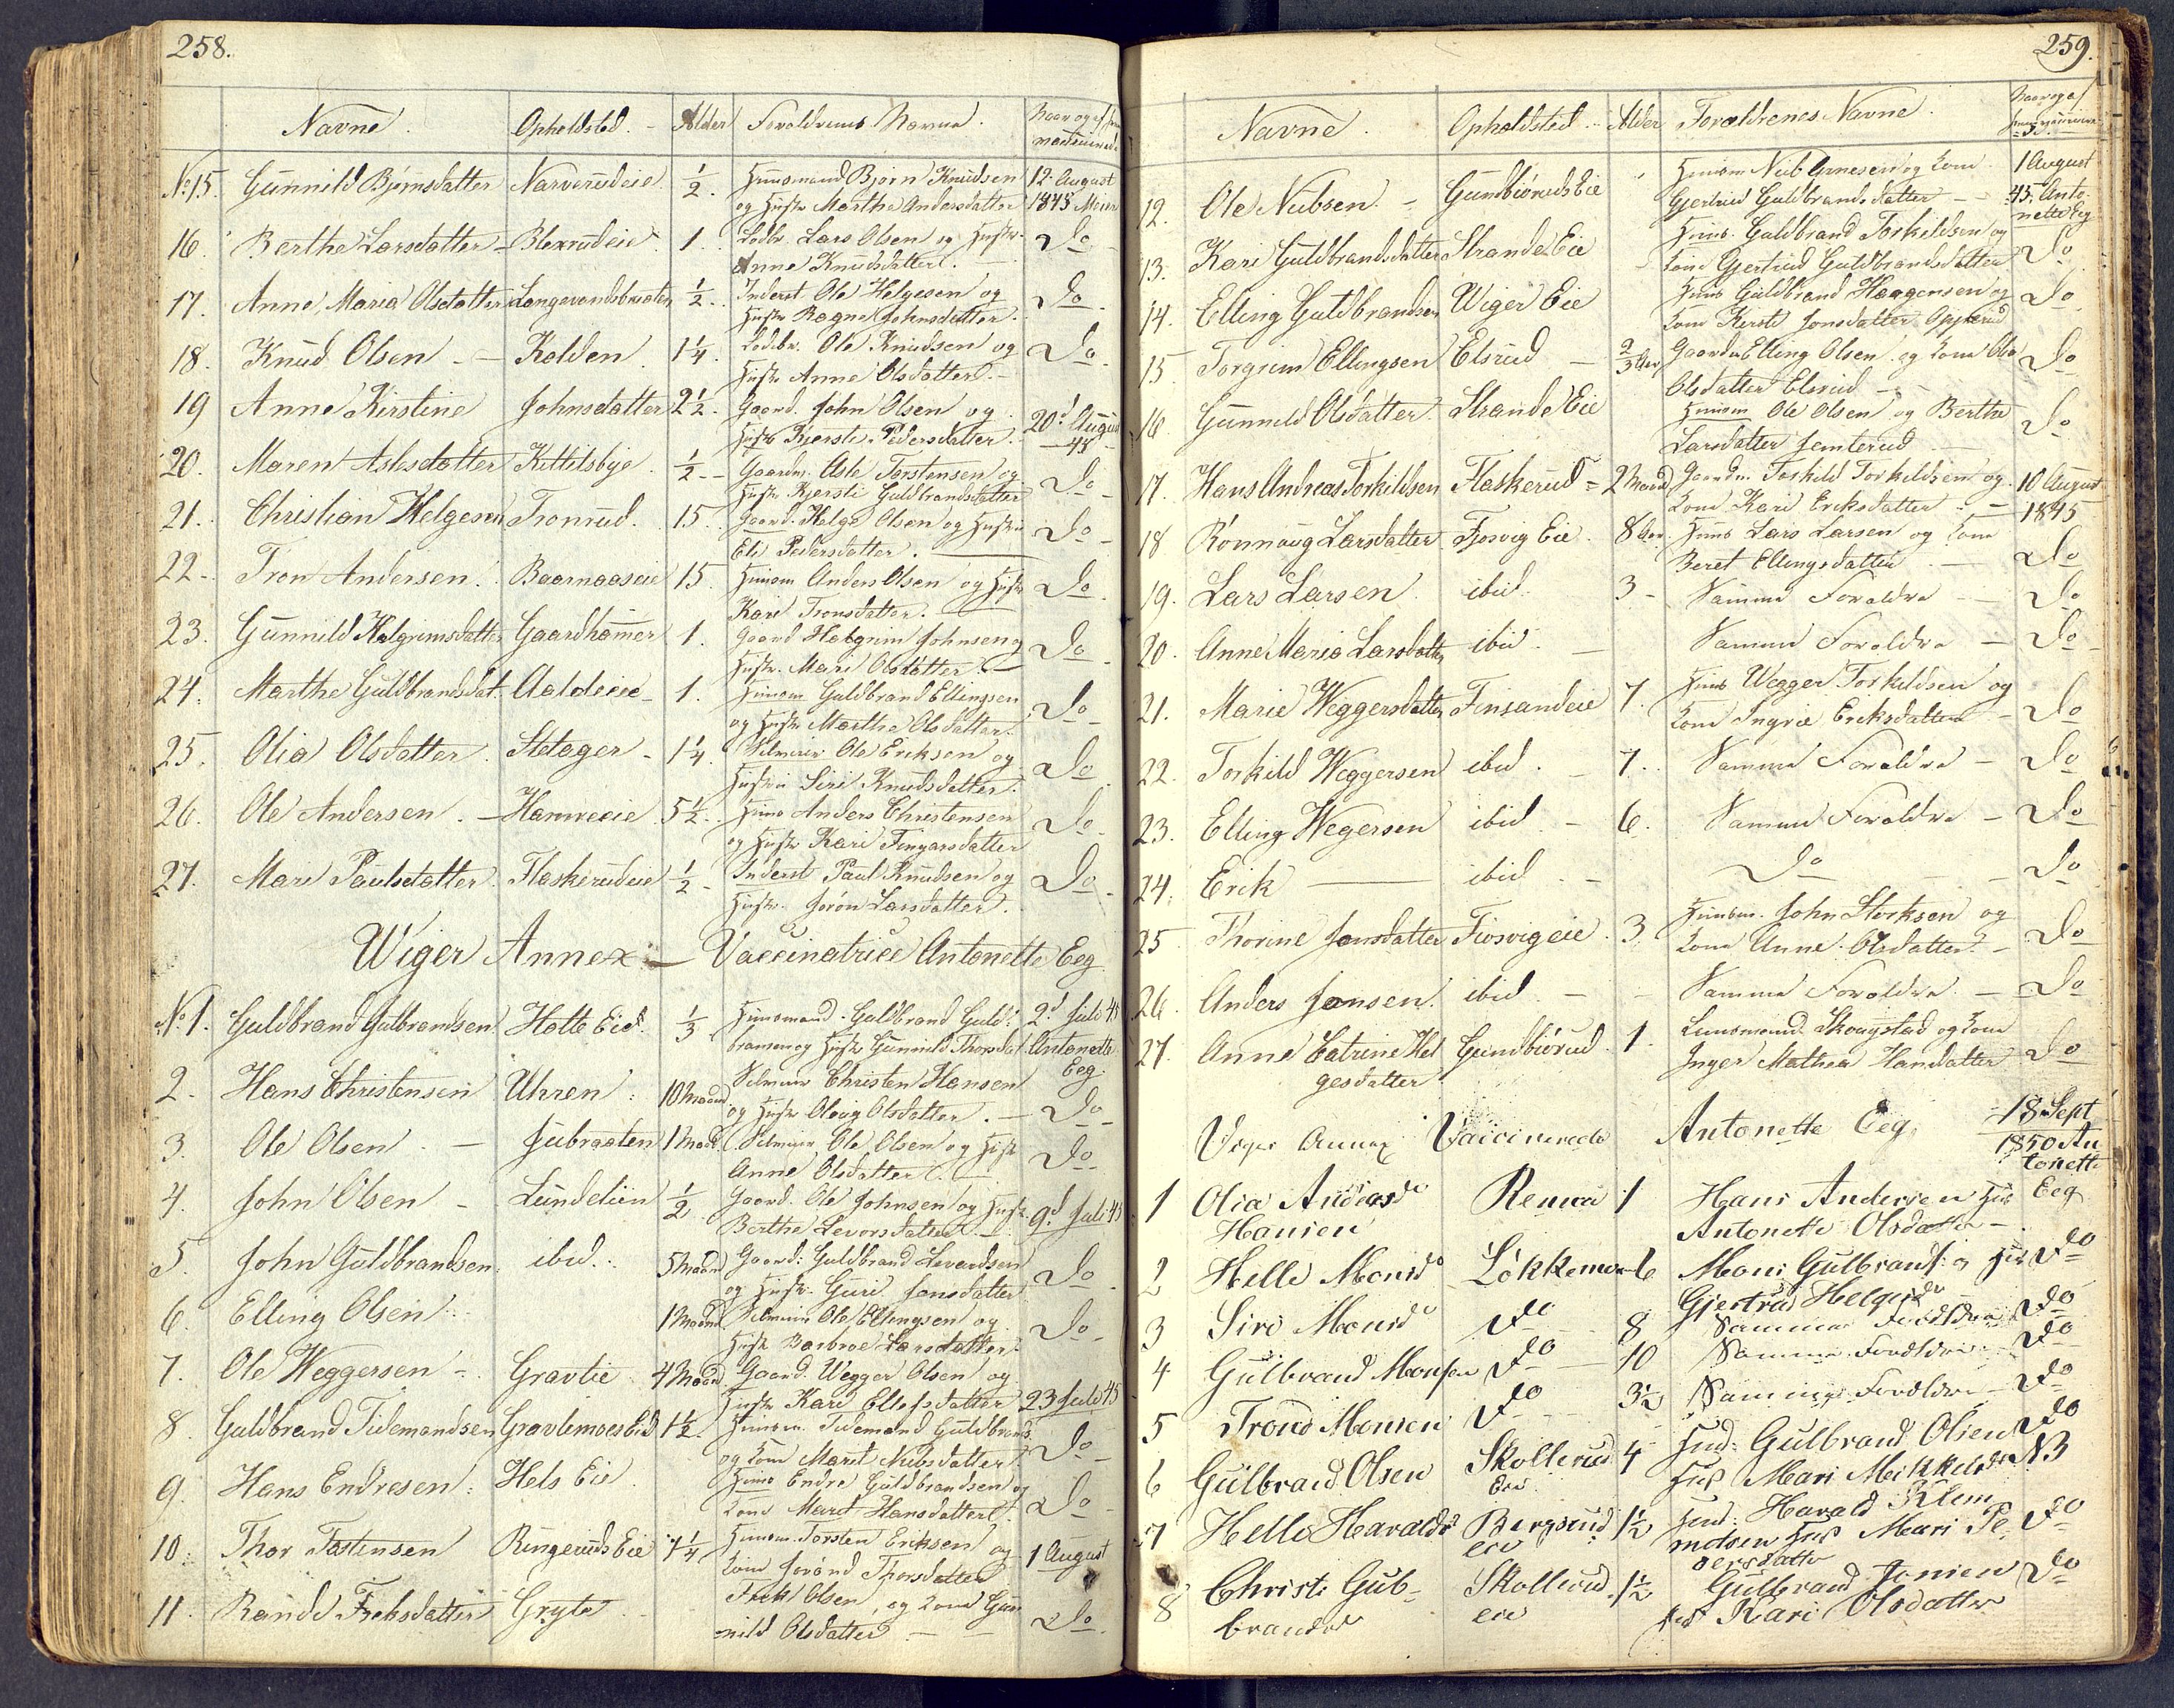 258.
Navne. Opholdsted. Alder Forældrenes Navne. Naar og af
No 15. Gunnild Bjørnsdatter Narverudeie ½. Huusmand Bjørn Knudsen 12. August
og Hustr Marthe Andersdatter 1845 Moen
16. Berthe Larsdatter Blexrudeie 1. Lodbr. Lars Olsen og Hustr. Do
Anne Knudsdatter.
17. Anne Maria Olsdatter Langevandsbraaten ½. Inderst Ole Helgesen og Do
Hustr Ragne Johnsdatter.
18. Knud Olsen Kolden 1¼. Lodbr. Ole Knudsen og Do
Hustr Anne Olsdatter.
19 Anne Kirstine Johnsdatter 2½. Gaard. John Olsen og 20d August
Hustr Kjersti Pedersdatter. 45
20. Maren Aslesdatter Kittilsbye ½ Gaardm. Asle Torstensen og Do
Hustr Kjersti Guldbrandsdatter
21. Christian Helgesen Tronrud. 15. Gaard. Helge Olsen og Hustru Do
Eli Pedersdatter.
22. Tron Andersen. Baarnaaseie 15. Huusm Anders Olsen og Hustr Do
Kari Tronsdatter.
23. Gunnild Halgrimsdatter Gaardhammer 1. Gaard Halgrim Johnsen og Do
Hustr. Mari Olsdatter.
24. Marthe Guldbrandsdat. Aaldeeie 1. Huusm Guldbrand Ellingsen Do
og Hustr Marthe Olsdatter.
25. Olia Olsdatter. Sletager 1¼ Selveier Ole Eriksen og Do
Hustru Siri Knudsdatter.
26. Ole Andersen. Hamreeie 5½. Huus Anders Christensen Do
og Hustr Kari Fingarsdatter
27. Mari Paulsdatter. Flaskerudeie ½ Inderst Paul Knudsen og Do
Hustr. Jørøn Larsdatter.
Wiger Annex Vaccinatrice Antonette Eeg
No 1. Guldbrand Gulbrandsen Holte Eie ⅓ Huusmand. Guldbrand Guld= 2d Juli 45
bransen og Hustr Gunnild Thorsdat Antonette
Eeg.
2. Hans Christensen Uhren 10 Maand Selveier Christen Hansen Do
og Hustr Olaug Olsdatter.
3. Ole Olsen Jubraaten 1 Maad Selveier Ole Olsen og Hustr Do
Anne Olsdatter.
4. John Olsen Lundelien ½ Gaard. Ole Johnsen og Hustr. 9d Juli 45
Berthe Levorsdatter
5. John Guldbrandsen ibid. 5 Maand Gaard: Guldbrand Levordsen Do
og Hustr. Guri Jonsdatter
6. Elling Olsen 1 Maand Selveier Ole Ellingsen og Do
Hustr Barbroe Larsdatter
7. Ole Weggersen Gravlie 4 Maand Gaard. Wegger Olsen og
Hustr Kari Ellefsdatter 23 Juli 45
8. Guldbrand Tidemandsen Gravlimoes Eie 1½ Huusm. Tidemand Guldbrands. Do
og Kone Marit Nubsdatter
9. Hans Endresen Hels Eie Huus Endre Guldbrandsen og Do
Kone Marit Hansdatter.
10. Thor Tostensen Ringeruds Eie 7¼ Huusm. Torsten Eriksen og 1 August
Kone Jorønd Thorsdatter
11. Randi Freksdatter Gryte Frek Olsen, og Kone Gun Do
nild Olsdatter
259.
Navne. Opholdsted. Alder Forældrenes Navne. Naar og af
12. Ole Nubsen. Gundbiøruds Eie Huusm Nub Arnesen og Kone 1 August
Gjertrud Guldbrandsdatter 45. Anto
nette Eeg
13. Kari Guldbrandsdatter Strande Eie Huus. Guldbrand Torkildsen og Do
Kone Gjertrud Guldbrandsdatter
14. Elling Guldbrandsen Wiger Eie Huus Guldbrand Haagensen og Do
Kone Kirsti Jonsdatter Opperud
15 Torgrim Ellingsen Elsrud Gaardm Elling Olsen og Kone Do
Olsdatter Elsrud
16. Gunnild Olsdatter. Strande Eie Huusm Ole Olsen og Berthe Do
Larsdatter Jemterud
17. Hans Andreas Torkildsen Flaskerud 2 Maand Gaardm. Torkild Torkildsen og 10 August
Kone Kari Eriksdatter 1845
18 Rønnaug Larsdatter Fjosvig Eie 8 Huus Lars Larsen og Kone
Beret Ellingsdatter Do
19. Lars Larsen ibid. 3 Samme Forældre Do
20. Anne Maria Larsdatter ibid. Samme Forældre Do
21. Marie Weggersdatter Finsandeie 7. Huus Wegger Torkildsen og
Kone Ingrie Eriksdatter Do
22. Torkild Weggersen ibid. 7. Samme Forældre Do
23. Elling Wegersen ibid 6. Samme Forældre Do
24. Erik ibid Do Do
25 Thorine Jonsdatter Fiosvigeie 3. Huusm. John Storksen og
Kone Anne Olsdatter Do
26. Anders Jonsen. ibid Samme Forældre. Do
27. Anne Catrine Hel Gundbiørud. 1. Lensmand Skougstad og Kone
gesdatter Inger Mathea Hansdatter Do
Viger Annex Vaccinerede Antonette Eeg. 18 Sept
1850 An
tonette
1 Olia Andreas Remen 1 Hans Andersen Hus Eeg
Hansen Antonette Olsdatter
2 Helle Monsd Løkkemoe 6 Mons Gulbrands: og Hus Do
Gjertrud Helgesd
3 Siri Monsd Do 8 Samme Forældre Do
4 Gulbrand Monsen Do 10 Samme Forældre Do
5 Trond Monsen Do 3½ Samme Forældre Do
6 Gulbrand Olsen Skollerud 4 Ind: Gulbrand Olsen Do
Eie Hus Mari Mikkelsd NB
7 Helle Haraldsd Bergsrud 1½ Ind. Harald Klem
eie metsen Hus Mari Pe Do
dersdatter
8 Christi Gul- Skollerud 1½ Gulbrand Jonsen Do
brandsd eie Hus Kari Olsdatter